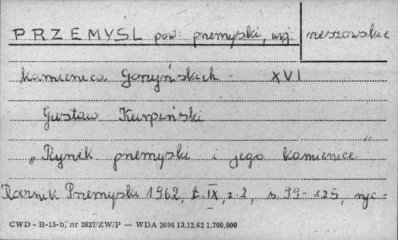 PRZEMYŚL pow. przemyski, woj. rzeszowskie
Kamienica Goryńskich XVI
Gustaw Kurpiński
„Rynek przemyski i jego kamienice"
Rocznik Przemyski 1962, t. IX, z. 2, s. 99-125, ryc-
CWD - B-15-b, nr 2827/ZW/P — WDA 2694 13.12.62 1.700.000